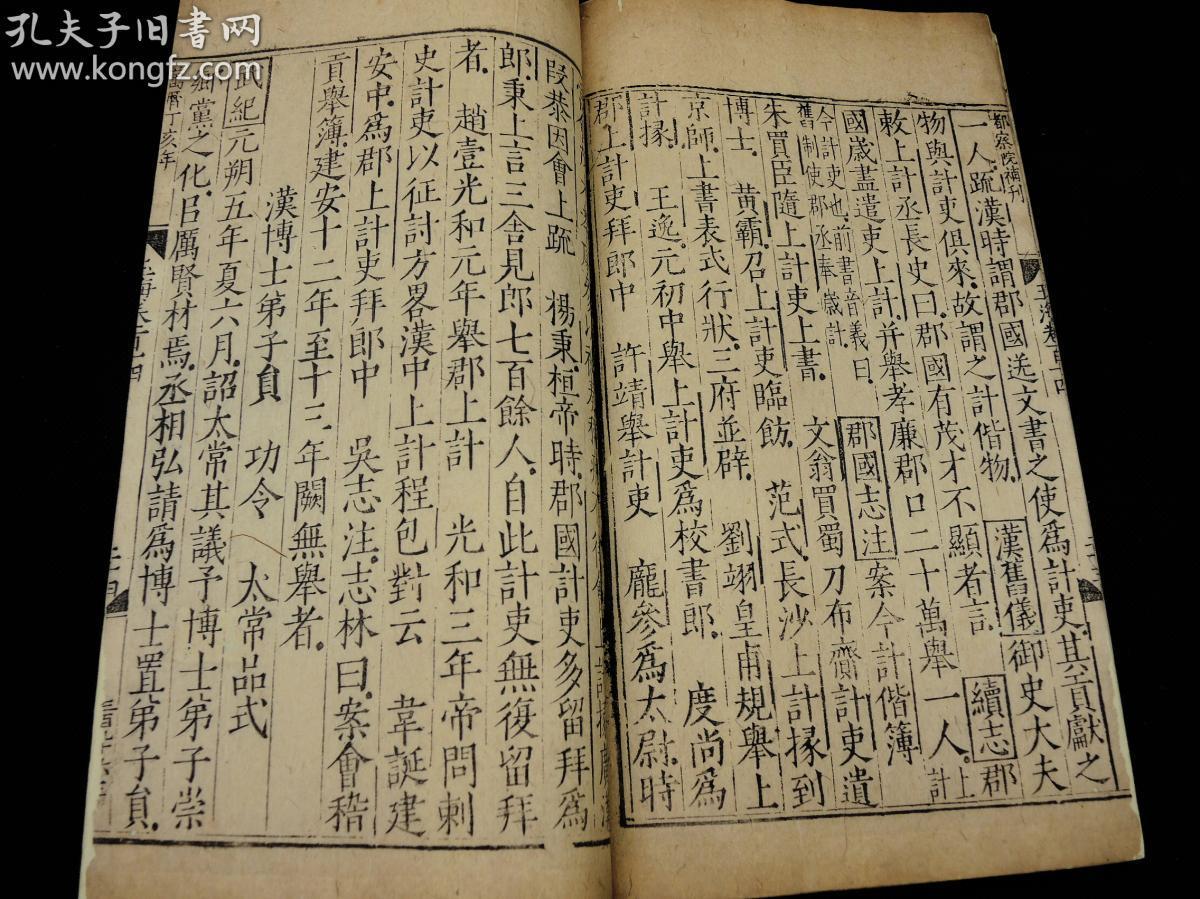 孔夫子旧书网
www.kongfz.com
都察院補刊
一人䟽漢時謂郡國送文書之使為計吏其貢獻之
物與計吏俱來故謂之計偕物 漢舊儀御史大夫
敕上計丞長史曰郡國有茂才不顯者言 續志郡
國歲盡遣吏上計并舉孝廉郡口二十萬舉一人上計
今計吏也前書音義曰
舊制使郡丞奉歲計
郡國志注案今計偕簿
文翁買蜀刀布齎計吏遺
朱買臣隨上計吏上書 范式長沙上計掾到
博士 黃霸召上計吏臨飭 劉翊皇甫規舉上
京師上書表式行狀三府並辟 度尚為
計掾 王逸元初中舉上計吏為校書郎
郡上計吏拜郎中 許靖舉計吏 龐參為太尉時
段恭因會上䟽 楊秉桓帝時郡國計吏多留拜為
郎秉上言三舍見郎七百餘人自此計吏無復留拜
者 趙壹光和元年舉郡上計 光和三年帝問剌
史計吏以征討方畧漢中上計程包對云 韋誕建
安中為郡上計吏拜郎中 吳志注志林曰案會稽
貢舉簿建安十二年至十三年闕無舉者
漢博士弟子員 功令 太常品式
武紀元朔五年夏六月詔太常其議予博士弟子崇
鄉黨之化㠯厲賢材焉丞相弘請為博士置弟子員